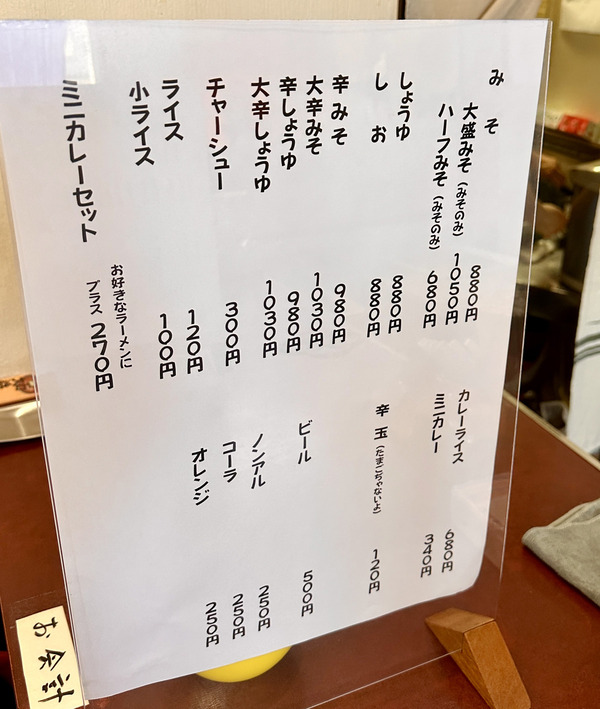 みそ 880円
大盛みそ(みそのみ) 1050円
ハーフみそ(みそのみ) 680円
しょうゆ 880円
しお 880円
辛みそ 980円
大辛みそ 1030円
辛しょうゆ 980円
大辛しょうゆ 1030円
チャーシュー 300円
ライス 120円
小ライス 100円
ミニカレーセット
お好きなラーメンに
プラス 270円
カレーライス 680円
ミニカレー 340円
辛玉(たまごちゃないよ) 120円
ビール 500円
ノンアル 250円
コーラ 250円
オレンジ 250円
お会計